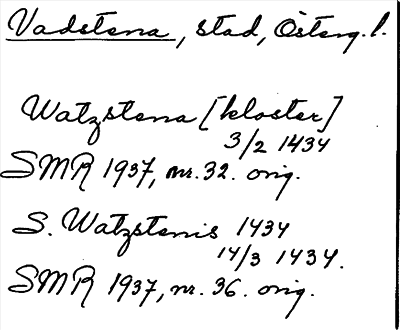 Vadstena, stad, Österg. l.
Watzstena [kloster]
3/2 1434
SMR 1937, nr. 32. orig.
S. Watzstenis 1434
14/3 1434.
SMR 1937, nr. 36. orig.